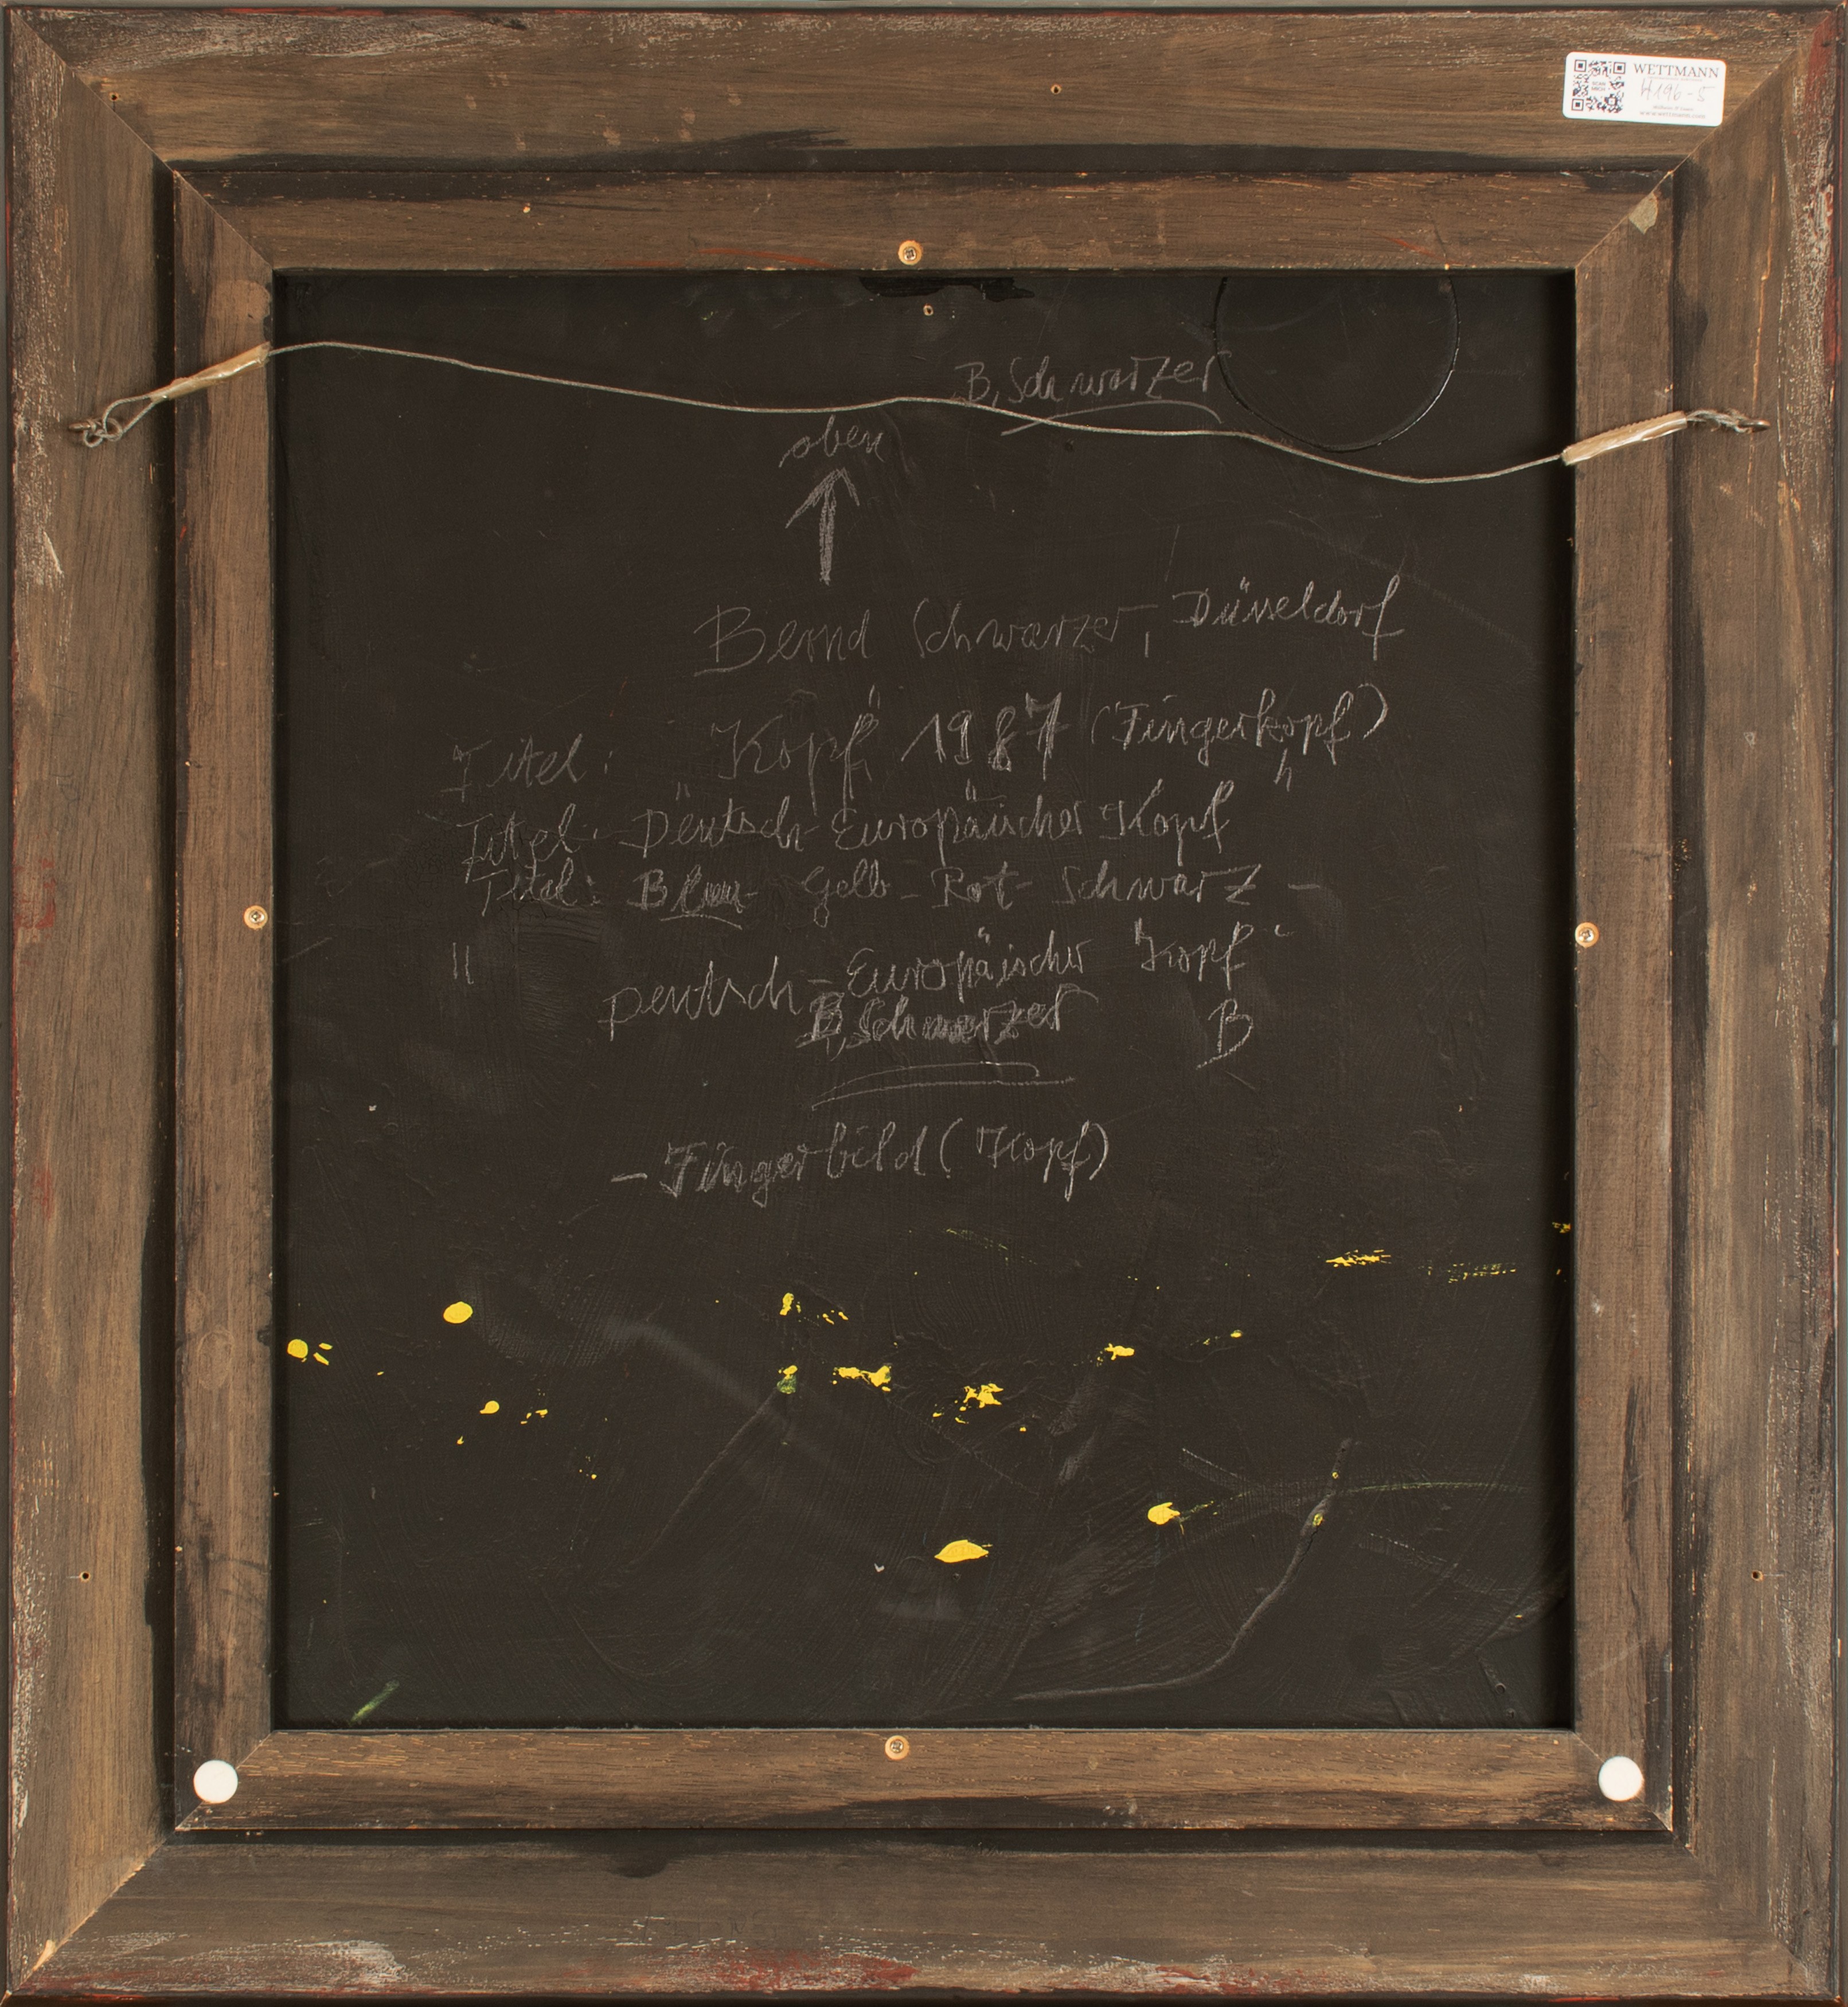 WETTMANN
H196-5
www.wettmann.com
B. Schwarzer
oben
Bernd Schwarzer, Düsseldorf
Titel: "Kopf" 1987 (Fingerkopf)
Titel: "Deutsch-Europäischer Kopf
Titel: Blau- Gelb - Rot - Schwarz -
" Deutsch-Europäischer Kopf"
B. Schwarzer B
- Fingerbild (Kopf)